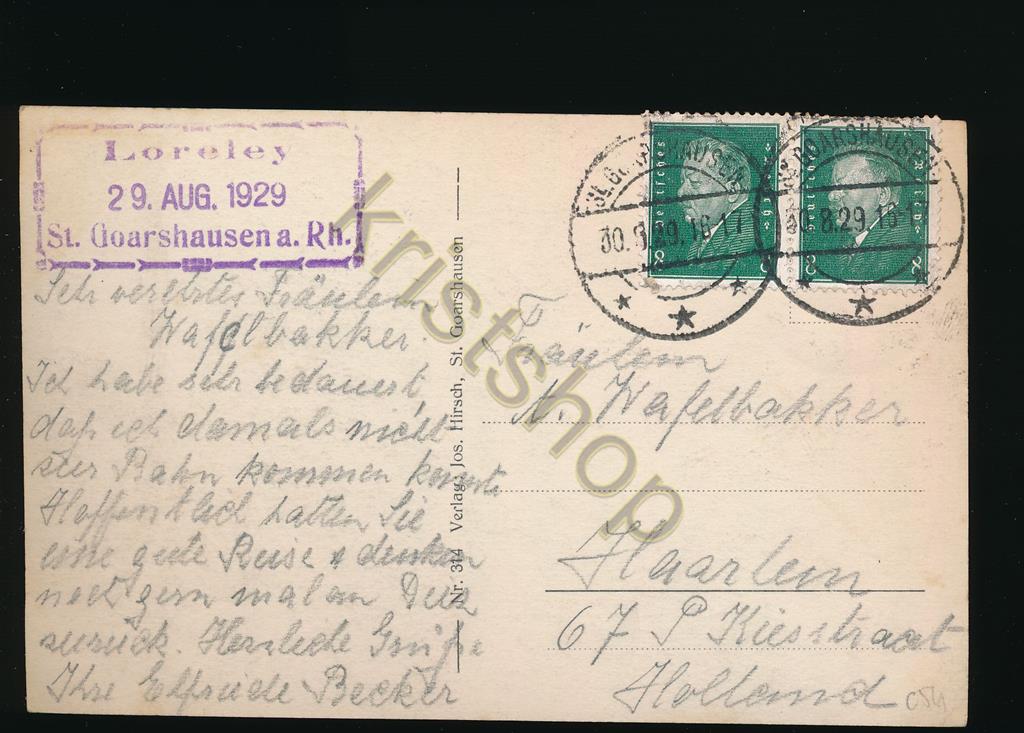 Loreley
29. AUG. 1929
St. Goarshausen a. Rh.
Sehr verehrtes Fräulein
Wafelbakker.
Ich habe sehr bedauert,
daß ich damals nicht
zur Bahn kommen konnte
Hoffentlich hatten Sie
eine gute Reise & denken
noch gern mal an
zurück. Herzliche Grüße
Ihre Elfriede Becker
Nr. 314 Verlag Jos. Hirsch, St. Goarshausen
ST. GOARSHAUSEN
30.8.29.16-17
Deutsches Reich
8 8
ST. GOARSHAUSEN
30.8.29.16-17
Deutsches Reich
8 8
Fräulein
N. Wafelbakker
Haarlem
67 P Kiesstraat
Holland
kristshop